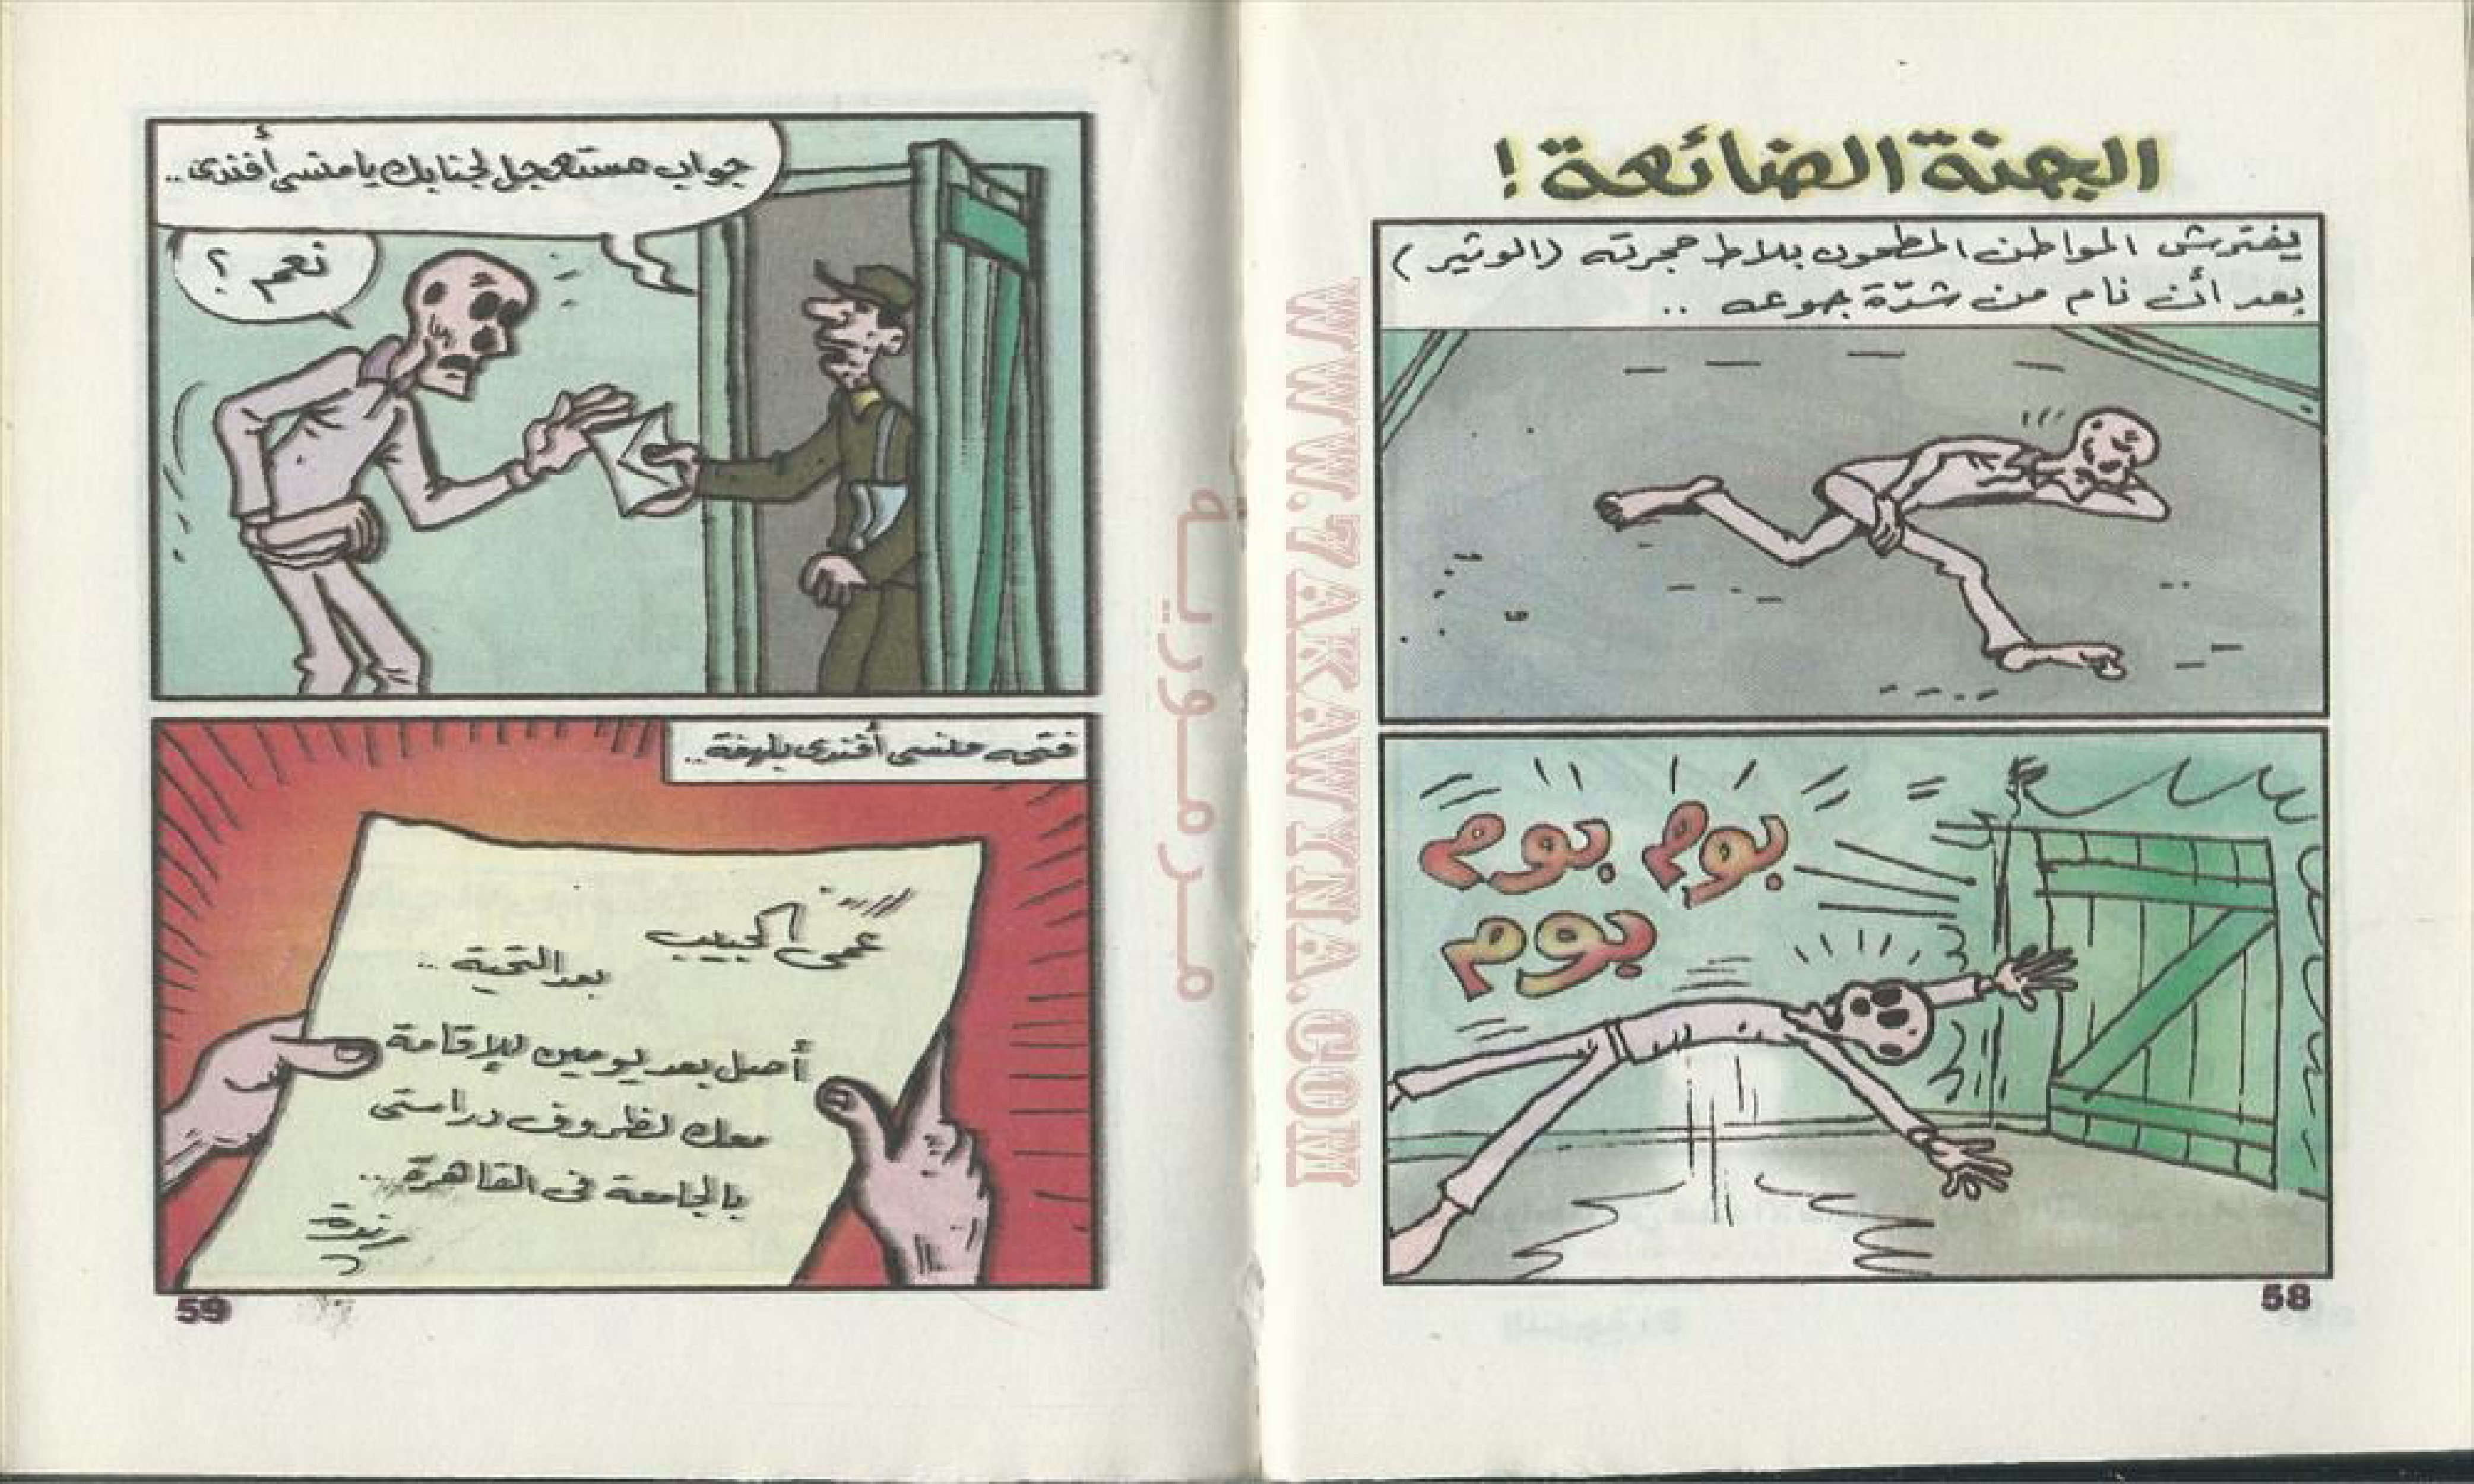 الجنة الضائعة !
يفترش المواطن المطحون بلاط حجرته (الوثير)
بعد أن نام من شدّة جوعه ..
بوم بوم
بوم
58
جواب مستعجل لجنابك يا منسى أفندى..
نعم ؟
فتحه منسى أفندى بلهفة..
عمى الحبيب
بعد التحية ..
أصل بعد يومين للإقامة
معك لظروف دراستى
بالجامعة فى القاهرة ..
59
WWW.7AKAWINA.COM
مرمورية